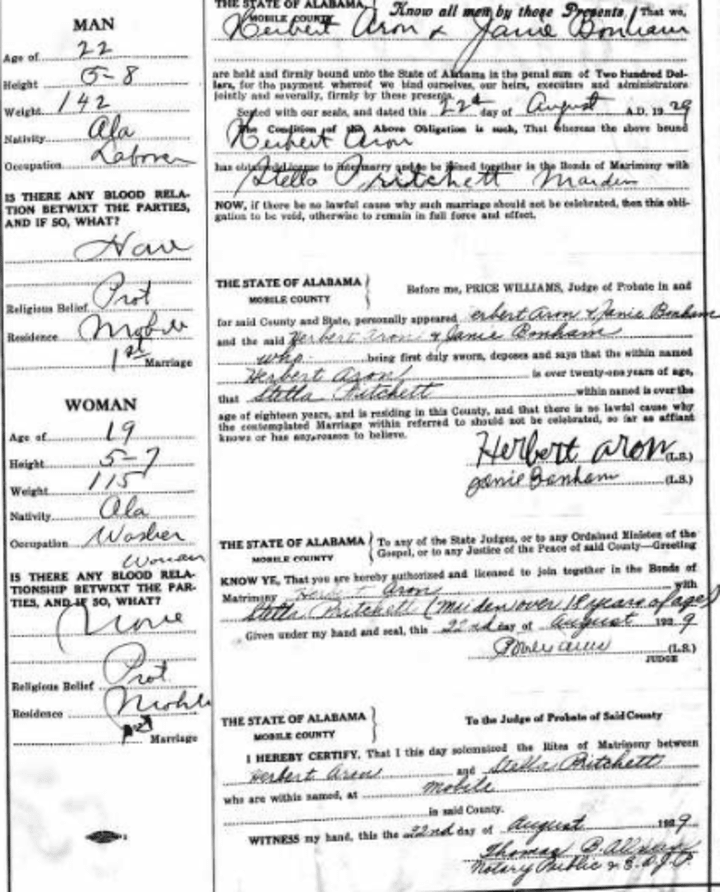 MAN
Age of 22
Height 5-8
Weight 142
Nativity Ala
Occupation Laborer
IS THERE ANY BLOOD RELA-
TION BETWIXT THE PARTIES,
AND IF SO, WHAT?
None
Religious Belief Prot
Residence Mobile
1st Marriage
WOMAN
Age of 19
Height 5-7
Weight 115
Nativity Ala
Occupation Washer
Woman
IS THERE ANY BLOOD RELA-
TIONSHIP BETWIXT THE PAR-
TIES, AND IF SO, WHAT?
None
Religious Belief Prot.
Residence Mobile
1st Marriage
THE STATE OF ALABAMA, Know all men by these Presents, That we,
MOBILE COUNTY
Herbert Aron & Janie Bonham
are held and firmly bound unto the State of Alabama in the penal sum of Two Hundred Dol-
lars, for the payment whereof we bind ourselves, our heirs, executors and administrators
jointly and severally, firmly by these presents.
Sealed with our seals, and dated this 22d day of August A.D. 1929
The Condition of the Above Obligation is such, That whereas the above bound
Herbert Aron
has obtained license to intermarry and to be joined together in the Bonds of Matrimony with
Stella Pritchett Maiden
NOW, if there be no lawful cause why such marriage should not be celebrated, then this obli-
gation to be void, otherwise to remain in full force and effect.
THE STATE OF ALABAMA
MOBILE COUNTY
Before me, PRICE WILLIAMS, Judge of Probate in and
for said County and State, personally appeared erbert Aron & Janie Bonham
and the said Herbert Aron & Janie Bonham
who being first duly sworn, deposes and says that the within named
Herbert Aron is over twenty-one years of age,
that Stella Pritchett within named is over the
age of eighteen years, and is residing in this County, and that there is no lawful cause why
the contemplated Marriage within referred to should not be celebrated, so far as affiant
knows or has any reason to believe.
Herbert Aron (L.S.)
Janie Bonham (L.S.)
THE STATE OF ALABAMA
MOBILE COUNTY
To any of the State Judges, or to any Ordained Minister of the
Gospel, or to any Justice of the Peace of said County—Greeting
KNOW YE, That you are hereby authorized and licensed to join together in the Bonds of
Matrimony Herbert Aron with
Stella Pritchett (Maiden over 18 years of age)
Given under my hand and seal, this 22nd day of August 1929
(L.S.)
JUDGE
THE STATE OF ALABAMA
MOBILE COUNTY
To the Judge of Probate of Said County
I HEREBY CERTIFY, That I this day solemnized the Rites of Matrimony between
Herbert Aron and Stella Pritchett
who are within named, at Mobile
in said County.
WITNESS my hand, this the 22nd day of August 1929
Thomas B.
Notary Public &